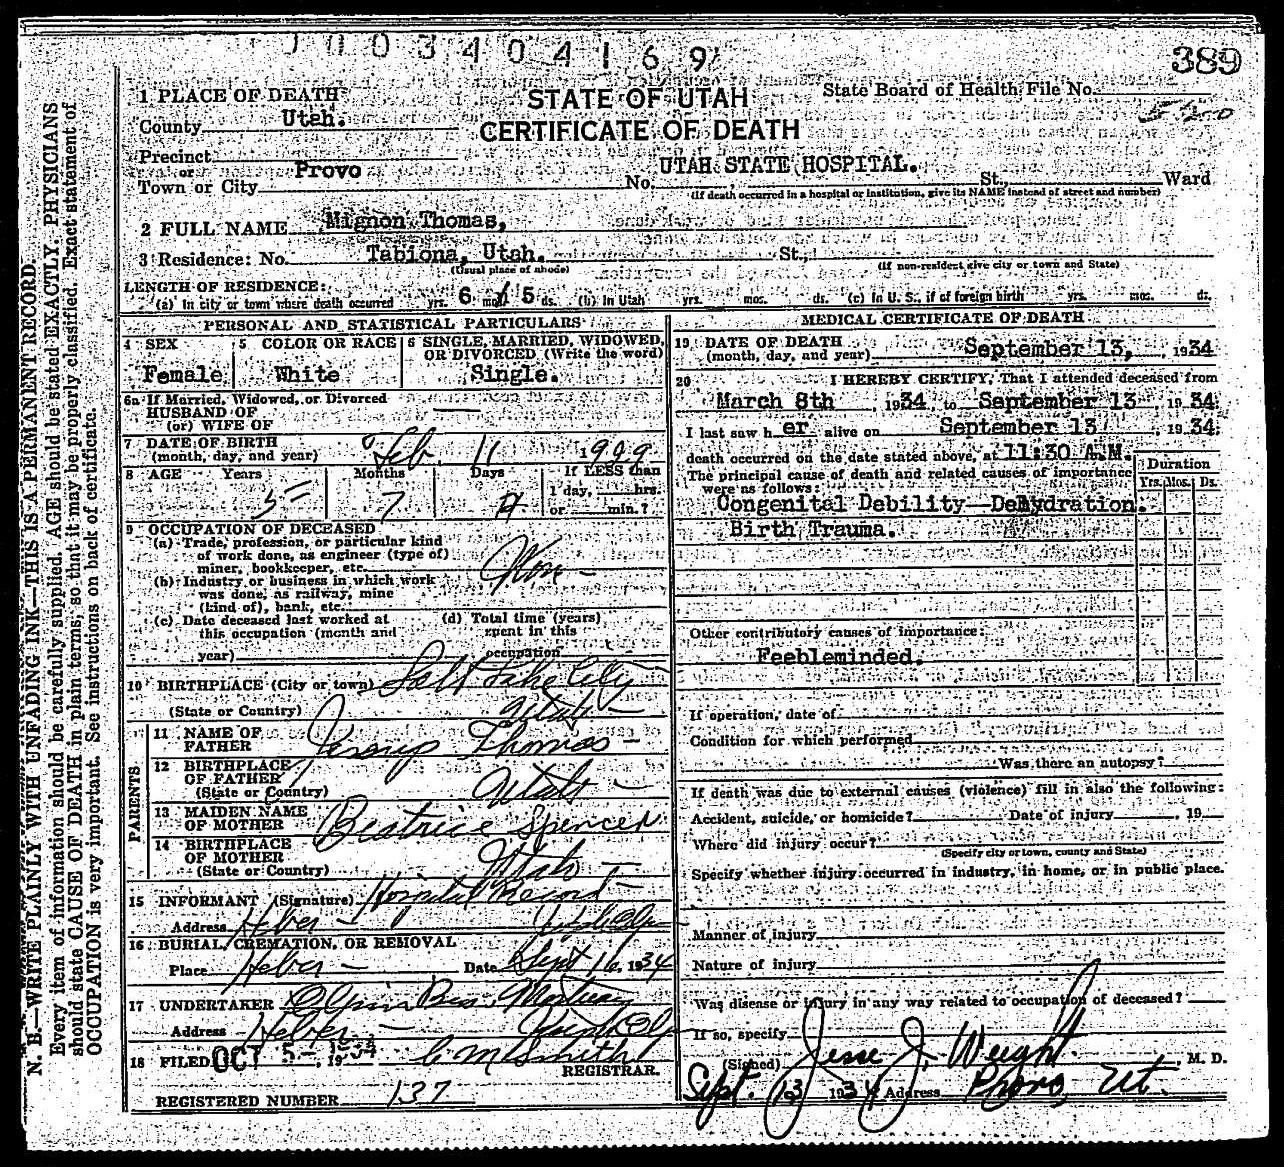 1 0 0 3 4 0 4 1 6 9
389
1 PLACE OF DEATH
STATE OF UTAH
State Board of Health File No.
County Utah.
CERTIFICATE OF DEATH
Precinct
or
Town or City Provo
No. UTAH STATE HOSPITAL. St., Ward
(If death occurred in a hospital or institution, give its NAME instead of street and number)
2 FULL NAME Mignon Thomas,
3 Residence: No. Tabiona, Utah. St.,
(Usual place of abode) (If non-resident give city or town and State)
LENGTH OF RESIDENCE:
(a) In city or town where death occurred yrs. 6 mos. 5 ds. (b) In Utah yrs. mos. ds. (c) In U. S., if of foreign birth yrs. mos. ds.
PERSONAL AND STATISTICAL PARTICULARS
4 SEX
Female
5 COLOR OR RACE
White
6 SINGLE, MARRIED, WIDOWED,
OR DIVORCED (Write the word)
Single.
6a If Married, Widowed, or Divorced
HUSBAND OF
(or) WIFE OF
7 DATE OF BIRTH
(month, day, and year) Feb. 11 19
8 AGE Years Months Days If LESS than
1 day, hrs.
or min.?
5 7
9 OCCUPATION OF DECEASED
(a) Trade, profession, or particular kind
of work done, as engineer (type of)
miner, bookkeeper, etc. Non -
(b) Industry or business in which work
was done, as railway, mine
(kind of), bank, etc.
(c) Date deceased last worked at
this occupation (month and
year)
(d) Total time (years)
spent in this
occupation
10 BIRTHPLACE (City or town) Salt Lake City
(State or Country) Utah -
PARENTS
11 NAME OF
FATHER Thomas -
12 BIRTHPLACE
OF FATHER
(State or Country) Utah -
13 MAIDEN NAME
OF MOTHER Beatrice Spencer
14 BIRTHPLACE
OF MOTHER
(State or Country) Utah -
15 INFORMANT (Signature) Hospital Record -
Address Heber -
16 BURIAL, CREMATION, OR REMOVAL
Place Heber - Date Sept 16, 1934
17 UNDERTAKER Olpin Bros. Mortuary
Address Heber -
18 FILED OCT 5 - 1934, 19 C M Smith
REGISTRAR.
REGISTERED NUMBER 137
MEDICAL CERTIFICATE OF DEATH
19 DATE OF DEATH
(month, day, and year) September 13, 1934
20 I HEREBY CERTIFY, That I attended deceased from
March 8th, 1934, to September 13, 1934.
I last saw h er alive on September 13, 1934,
death occurred on the date stated above, at 11:30 A.M.
The principal cause of death and related causes of importance
were as follows:
Duration
Yrs. Mos. Ds.
Congenital Debility--Dehydration.
Birth Trauma.
Other contributory causes of importance:
Feebleminded.
If operation, date of
Condition for which performed
Was there an autopsy?
If death was due to external causes (violence) fill in also the following:
Accident, suicide, or homicide? Date of injury , 19
Where did injury occur?
(Specify city or town, county and State)
Specify whether injury occurred in industry, in home, or in public place.
Manner of injury
Nature of injury
Was disease or injury in any way related to occupation of deceased?
If so, specify
(Signed) Jesse J. Weight M. D.
Sept. 13 1934 Address Provo, Ut.
N. B.—WRITE PLAINLY WITH UNFADING INK—THIS IS A PERMANENT RECORD.
Every item of information should be carefully supplied. AGE should be stated EXACTLY. PHYSICIANS
should state CAUSE OF DEATH in plain terms, so that it may be properly classified. Exact statement of
OCCUPATION is very important. See instructions on back of certificate.